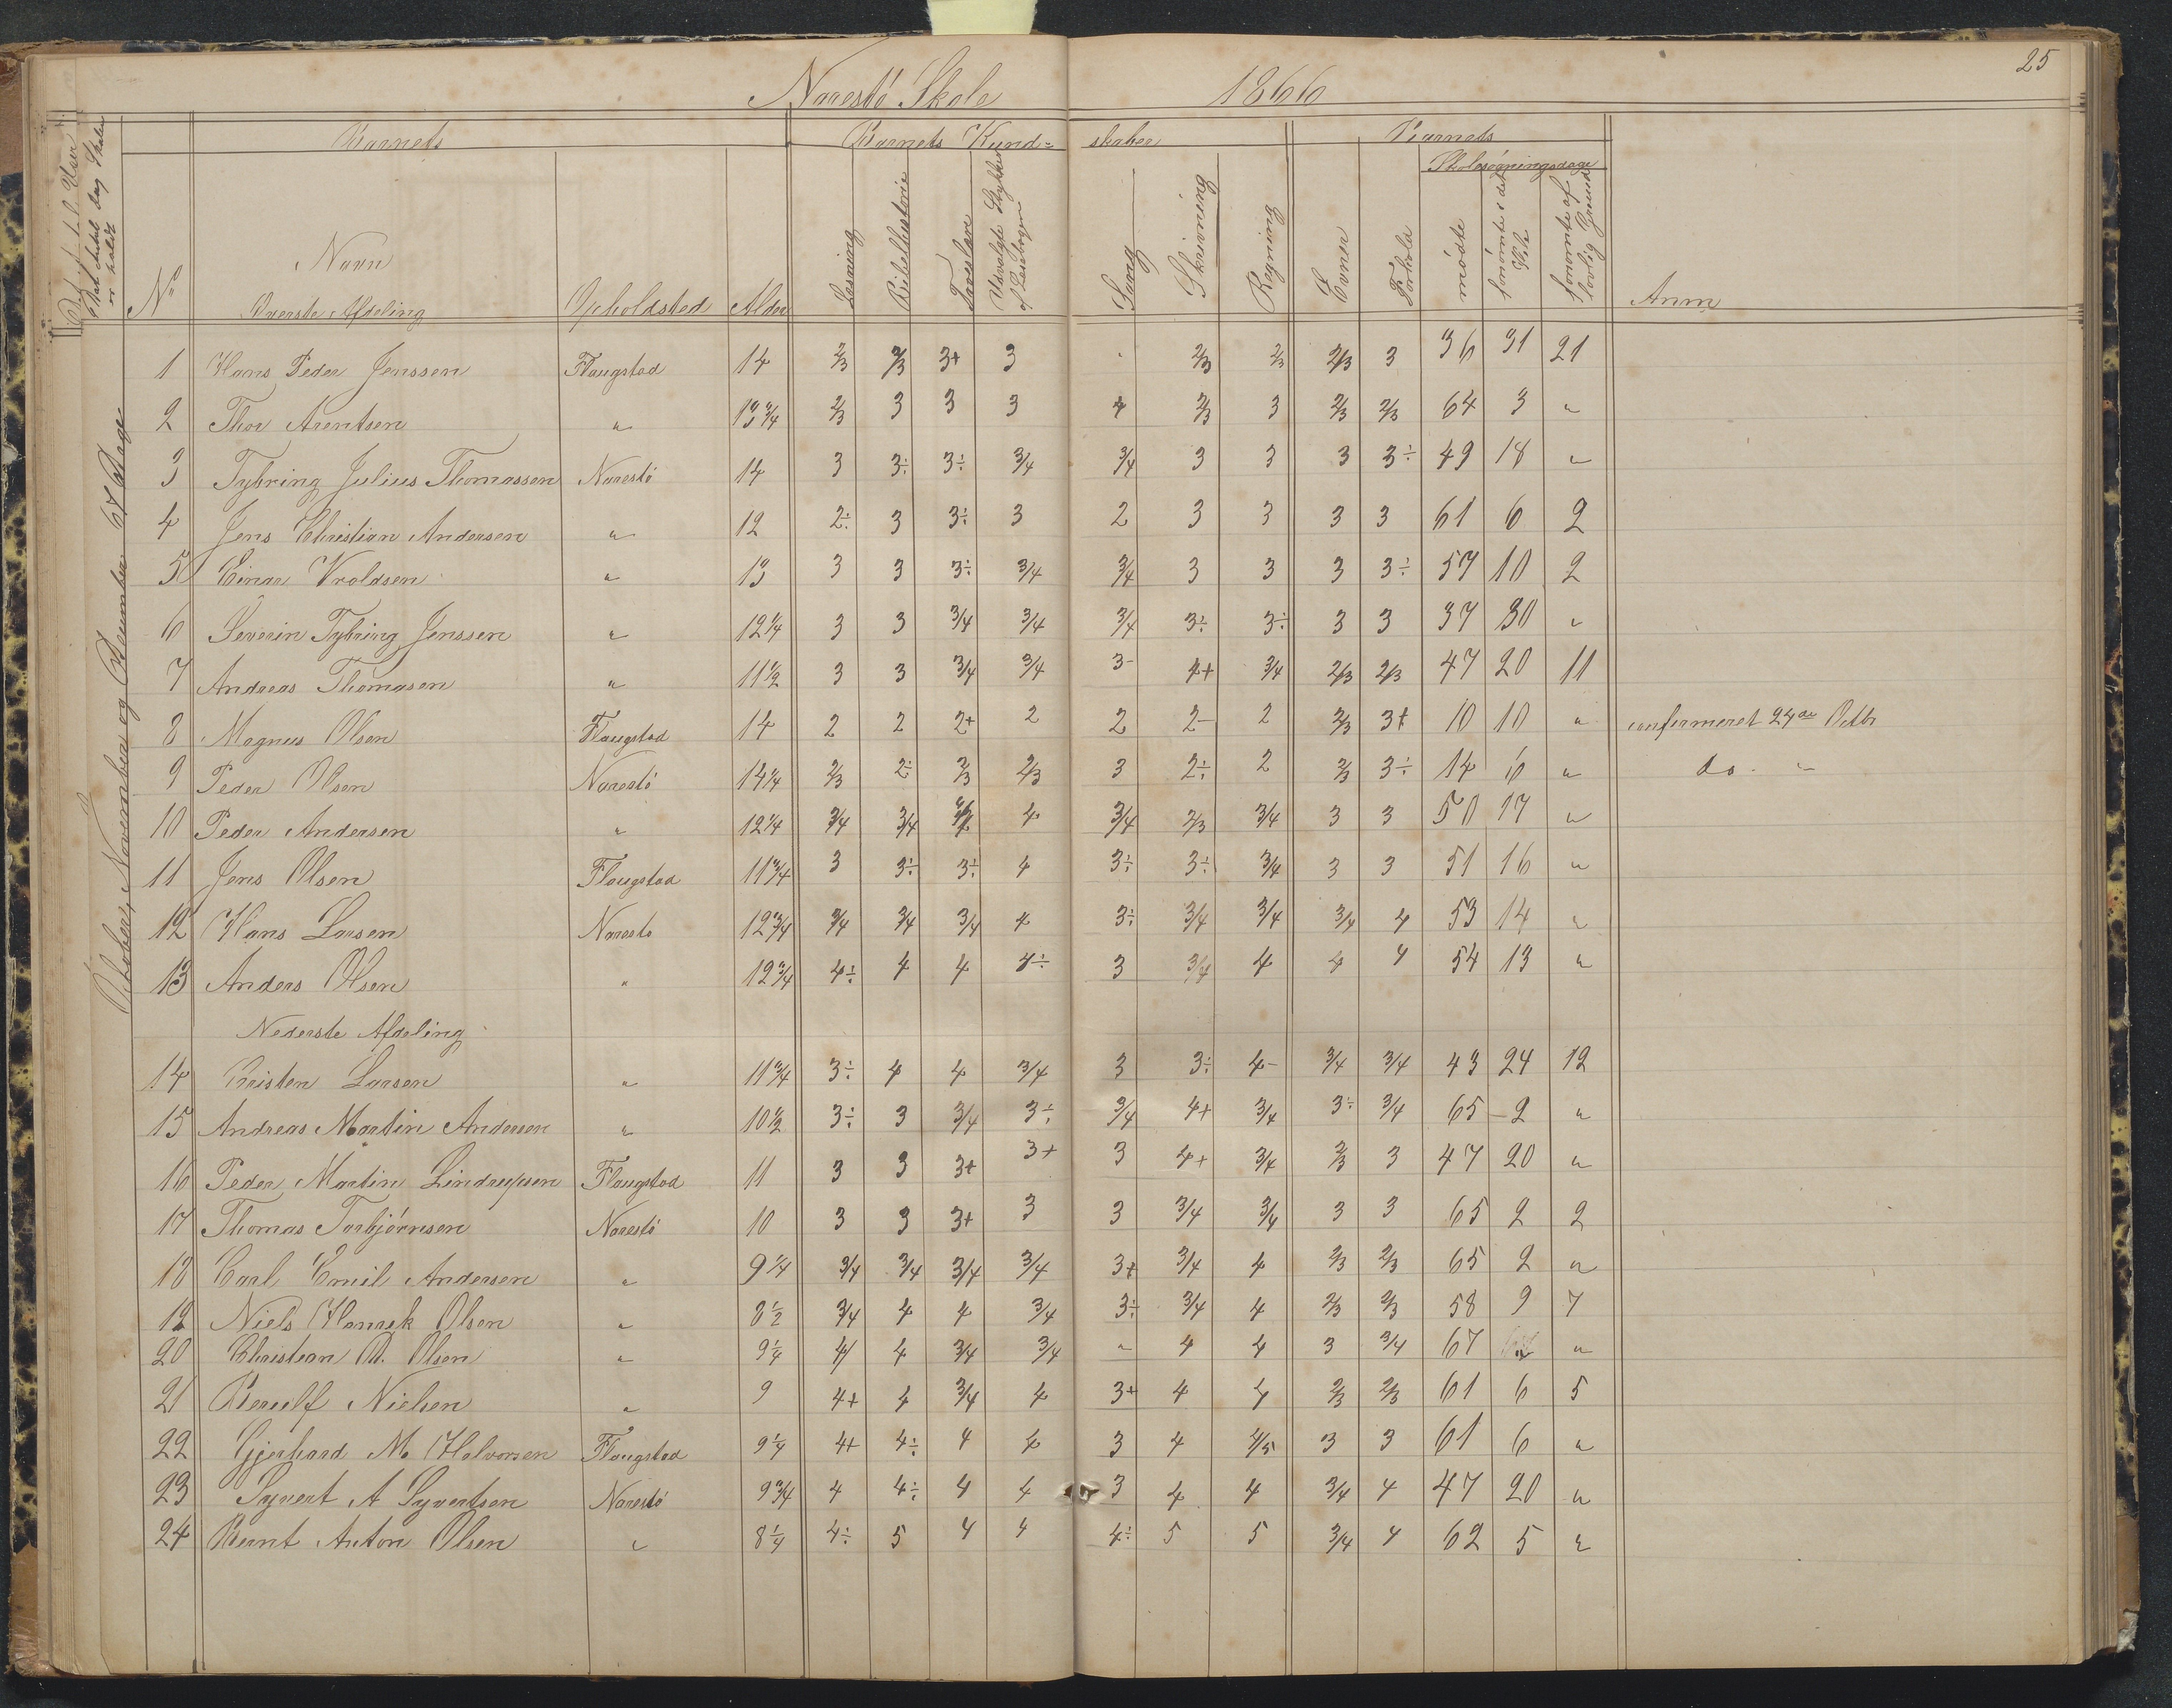 25
Narestö Skole 1866
Det hele Antal Dage Skolen er holdt
October, November og December 67 Dage
Barnets Barnets Kund- skaber Barnets
Skolesøgningsdage
No Navn Opholdsted Alder Læsning Bibelhistorie Tavelse Udvalgte Stykker af Læsebogen Sang Skrivning Regning Evner Forhold mødte forsømte i det Hele forsømte af lovlig Grund Anm
Øverste Afdeling
1 Hans Peder Jenssen Flaugstad 14 2/3 2/3 3+ 3 - 2/3 2/3 2/3 3 36 31 21
2 Thor Arentsen " 13 3/4 2/3 3 3 3 4 2/3 3 2/3 2/3 64 3 "
3 Tybring Julius Thomassen Narestö 14 3 3÷ 3÷ 3/4 3/4 3 3 3 3÷ 49 18 "
4 Jens Christian Andersen " 12 2÷ 3 3÷ 3 2 3 3 3 3 61 6 2
5 Einar Vroldsen " 13 3 3 3÷ 3/4 3/4 3 3 3 3÷ 57 10 2
6 Severin Tybring Jenssen " 12 1/4 3 3 3/4 3/4 3/4 3÷ 3÷ 3 3 37 30 "
7 Andreas Thomasen " 11 1/2 3 3 3/4 3/4 3- 4+ 3/4 2/3 2/3 47 20 11
8 Magnus Olsen Flaugstad 14 2 2 2+ 2 2 2- 2 2/3 3+ 10 10 " confermeret 24de Octbr
9 Peder Olsen Narestö 14 1/4 2/3 2÷ 2/3 2/3 3 2÷ 2 2/3 3÷ 14 6 " do. "
10 Peder Andersen " 12 1/4 3/4 3/4 4 3/4 2/3 3/4 3 3 50 17 "
11 Jens Olsen Flaugstad 11 3/4 3 3÷ 3÷ 4 3÷ 3÷ 3/4 3 3 51 16 "
12 Hans Larsen Narestö 12 3/4 3/4 3/4 3/4 4 3÷ 3/4 3/4 3/4 4 53 14 "
13 Anders Olsen " 12 3/4 4÷ 4 4 4÷ 3 3/4 4 4 4 54 13 "
Nederste Afdeling
14 Cristen Larsen " 11 3/4 3÷ 4 4 3/4 3 3÷ 4- 3/4 3/4 43 24 12
15 Andreas Martin Andersen " 10 1/2 3÷ 3 3/4 3÷ 3/4 4+ 3/4 3÷ 3/4 65 2 "
16 Peder Martin Lindrupsen Flaugstad 11 3 3 3+ 3+ 3 4+ 3/4 2/3 3 47 20 "
17 Thomas Torbjörnsen Narestö 10 3 3 3+ 3 3 3/4 3/4 3 3 65 2 2
18 Carl Emil Andersen " 9 1/4 3/4 3/4 3/4 3/4 3+ 3/4 4 2/3 2/3 65 2 "
19 Niels Henrek Olsen " 8 1/2 3/4 4 4 3/4 3÷ 3/4 4 2/3 2/3 58 9 7
20 Christian Olsen " 9 1/4 4 4 3/4 3/4 " 4 4 3 3/4 67 " "
21 Berulf Nielsen " 9 4+ 4 3/4 4 3+ 4 4 2/3 2/3 61 6 5
22 Gjerhard M. Halvorsen Flaugstad 9 1/4 4+ 4÷ 4 4 3 4 4/5 3 3 61 6 "
23 Syvert A Syvertsen Narestö 9 3/4 4 4÷ 4 4 3 4 4 3/4 4 47 20 "
24 Bernt Anton Olsen " 8 1/4 4÷ 5 4 4 4÷ 5 5 3/4 4 62 5 "